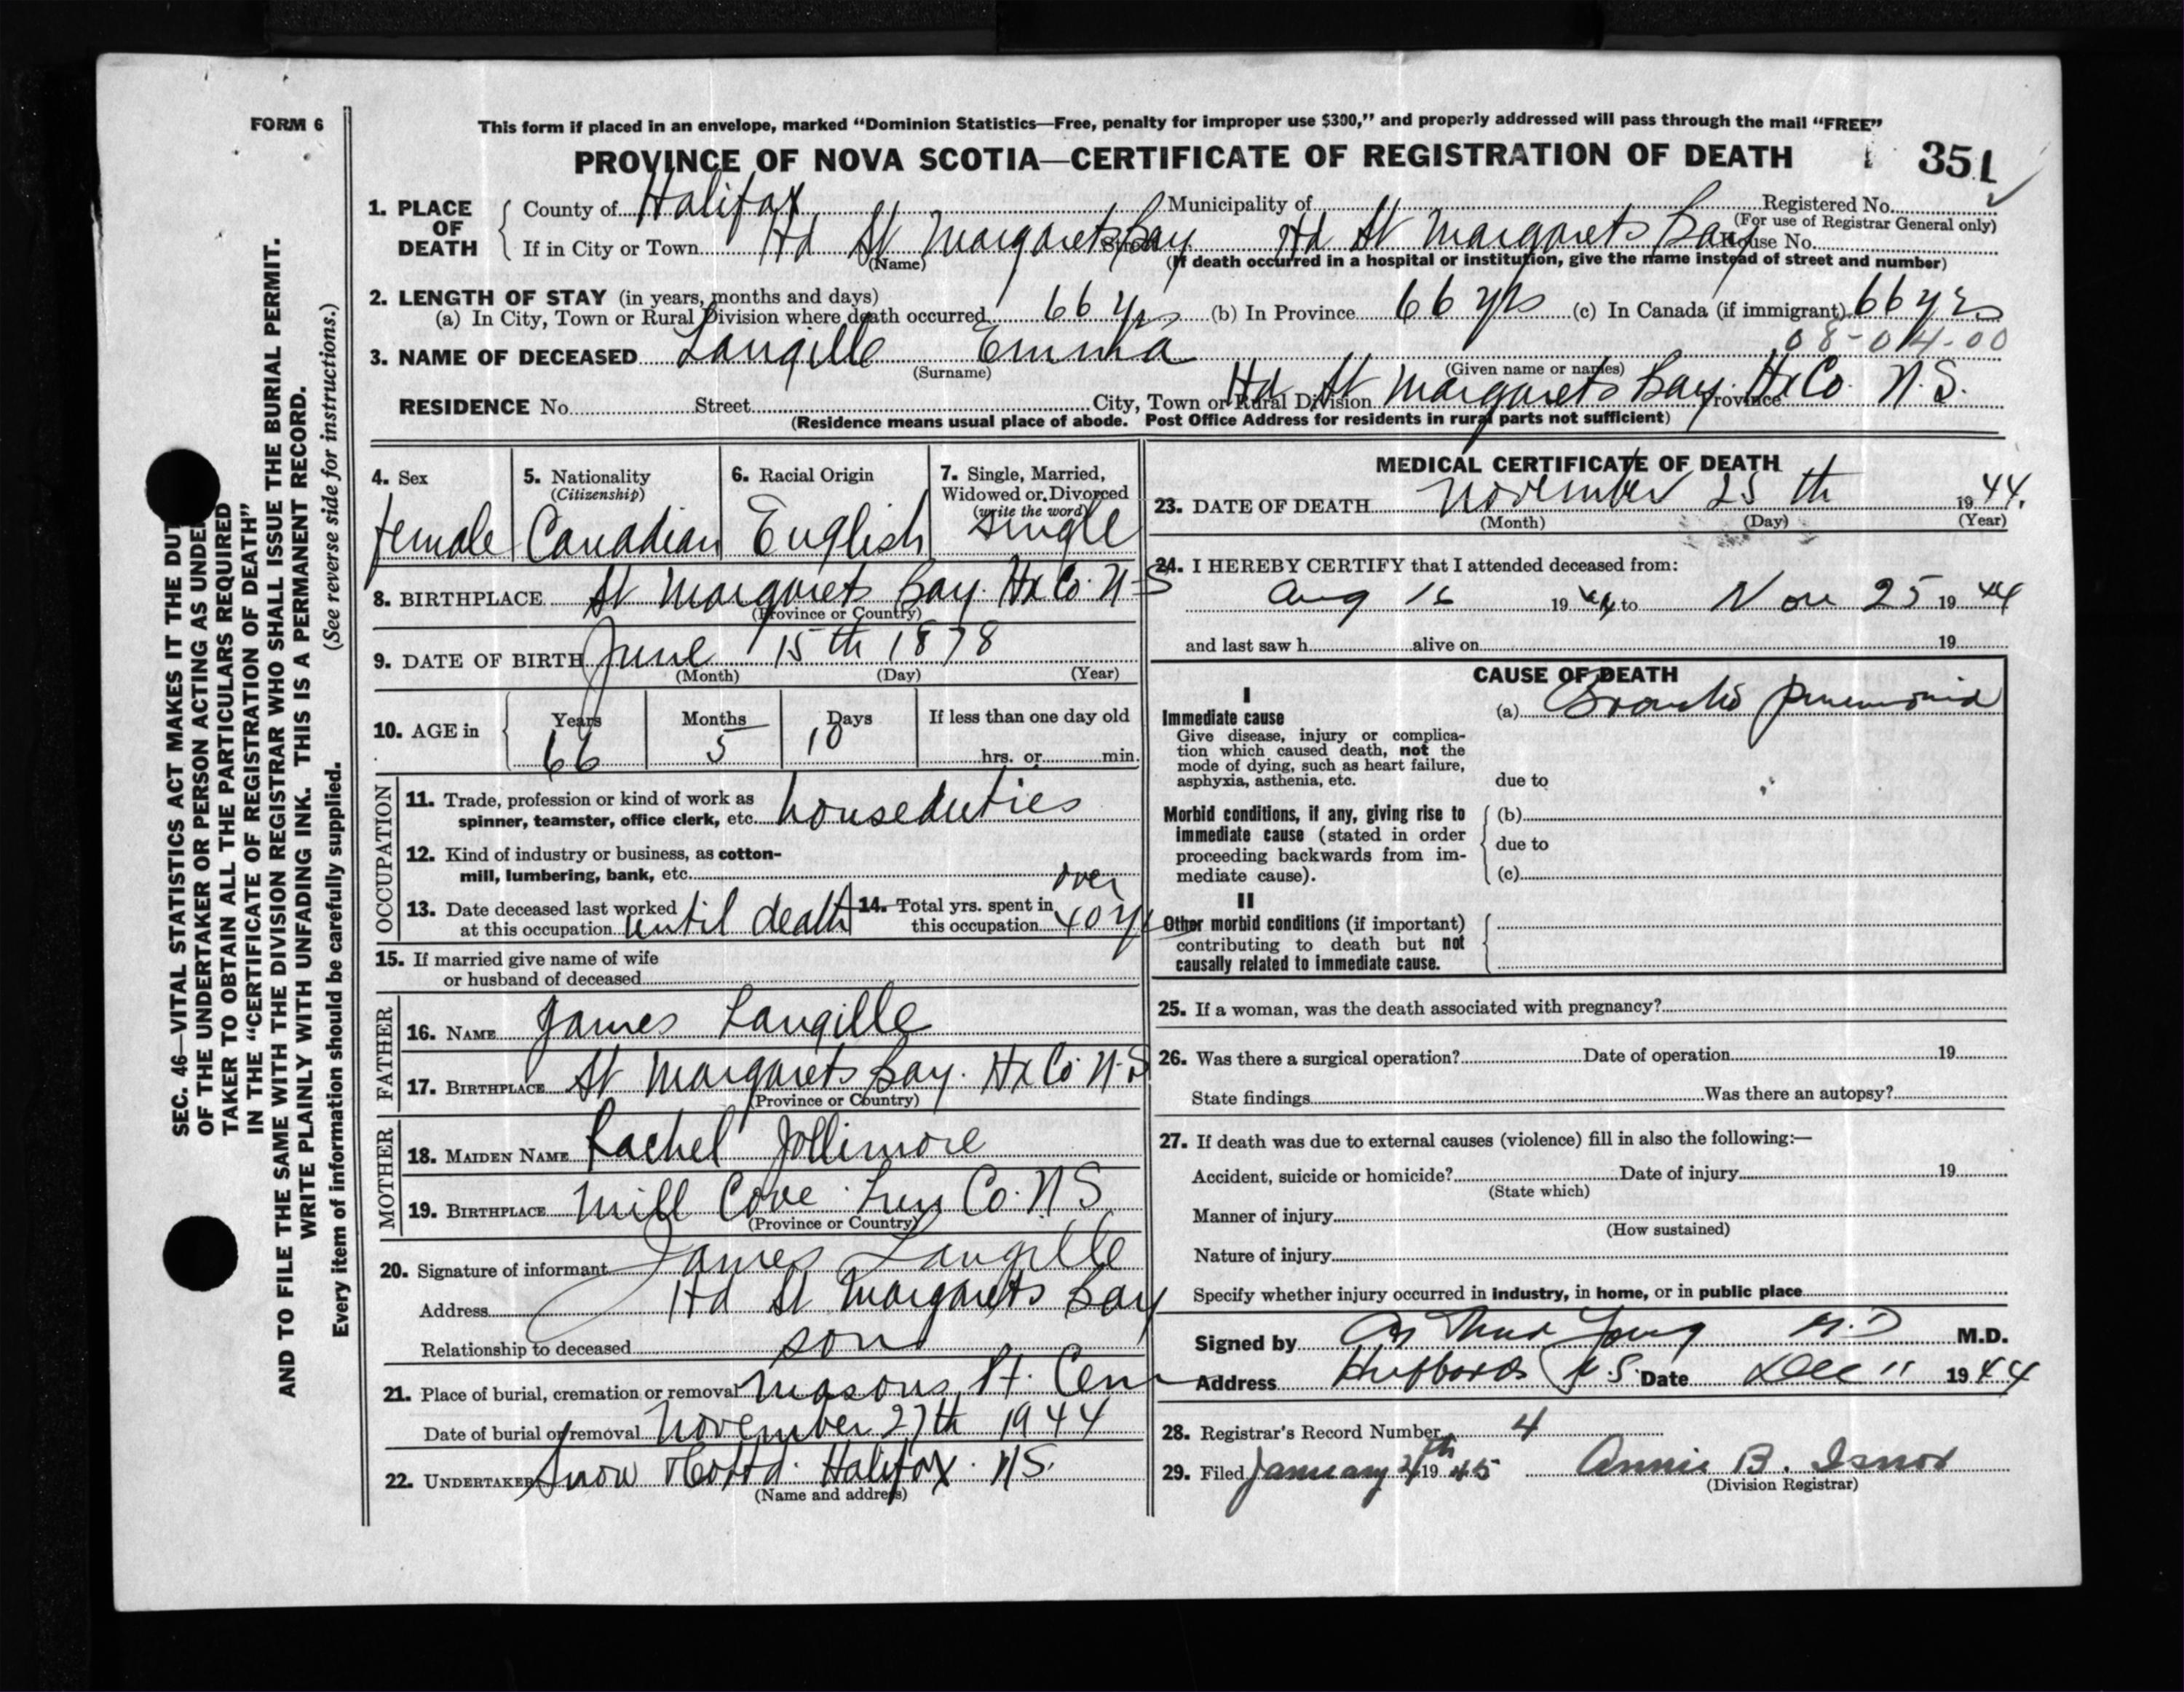 FORM 6
This form if placed in an envelope, marked "Dominion Statistics—Free, penalty for improper use $300," and properly addressed will pass through the mail "FREE"
PROVINCE OF NOVA SCOTIA—CERTIFICATE OF REGISTRATION OF DEATH 351
SEC. 46—VITAL STATISTICS ACT MAKES IT THE DUT
OF THE UNDERTAKER OR PERSON ACTING AS UNDE
TAKER TO OBTAIN ALL THE PARTICULARS REQUIRED
IN THE "CERTIFICATE OF REGISTRATION OF DEATH"
AND TO FILE THE SAME WITH THE DIVISION REGISTRAR WHO SHALL ISSUE THE BURIAL PERMIT.
WRITE PLAINLY WITH UNFADING INK. THIS IS A PERMANENT RECORD.
Every item of information should be carefully supplied. (See reverse side for instructions.)
1. PLACE OF DEATH County of Halifax Municipality of Hd St Margarets Bay Registered No.
(For use of Registrar General only)
If in City or Town Hd St Margarets Bay Street House No.
(Name) (If death occurred in a hospital or institution, give the name instead of street and number)
2. LENGTH OF STAY (in years, months and days)
(a) In City, Town or Rural Division where death occurred 66 yrs (b) In Province 66 yrs (c) In Canada (if immigrant) 66 yrs
08-04-00
3. NAME OF DECEASED Langille Emma
(Surname) (Given name or names)
RESIDENCE No. Street City, Town or Rural Division Hd St Margarets Bay. Hx Co. Province N.S.
(Residence means usual place of abode. Post Office Address for residents in rural parts not sufficient)
4. Sex female
5. Nationality (Citizenship) Canadian
6. Racial Origin English
7. Single, Married, Widowed or Divorced (write the word) single
8. BIRTHPLACE St Margarets Bay. Hx Co. N-S
(Province or Country)
9. DATE OF BIRTH June 15th 1878
(Month) (Day) (Year)
10. AGE in Years 66 Months 5 Days 10 If less than one day old hrs. or min.
OCCUPATION
11. Trade, profession or kind of work as
spinner, teamster, office clerk, etc. houseduties
12. Kind of industry or business, as cotton-
mill, lumbering, bank, etc.
13. Date deceased last worked
at this occupation until death
14. Total yrs. spent in
this occupation over 40 yr
15. If married give name of wife
or husband of deceased
FATHER
16. NAME James Langille
17. BIRTHPLACE St Margarets Bay. Hx Co. N-S
(Province or Country)
MOTHER
18. MAIDEN NAME Rachel Jollimore
19. BIRTHPLACE Mill Cove. Lun Co. N S
(Province or Country)
20. Signature of informant James Langille
Address Hd St Margarets Bay
Relationship to deceased son
21. Place of burial, cremation or removal Masons Pt. Cem
Date of burial or removal November 27th 1944
22. UNDERTAKER Snow & Co Ltd. Halifax. N.S.
(Name and address)
MEDICAL CERTIFICATE OF DEATH
23. DATE OF DEATH November 25th 1944.
(Month) (Day) (Year)
24. I HEREBY CERTIFY that I attended deceased from:
Aug 16 1944 to Nov 25 1944
and last saw h alive on 19
CAUSE OF DEATH
I
Immediate cause (a) Broncho pneumonia
Give disease, injury or complica-
tion which caused death, not the
mode of dying, such as heart failure,
asphyxia, asthenia, etc. due to
Morbid conditions, if any, giving rise to (b)
immediate cause (stated in order
proceeding backwards from im- due to
mediate cause). (c)
II
Other morbid conditions (if important)
contributing to death but not
causally related to immediate cause.
25. If a woman, was the death associated with pregnancy?
26. Was there a surgical operation? Date of operation 19
State findings Was there an autopsy?
27. If death was due to external causes (violence) fill in also the following:—
Accident, suicide or homicide? Date of injury 19
(State which)
Manner of injury
(How sustained)
Nature of injury
Specify whether injury occurred in industry, in home, or in public place
Signed by Arthur Young M.D M.D.
Address Hubbards N S. Date Dec 11 1944
28. Registrar's Record Number 4
29. Filed January 1945 Annie B. Isnor
(Division Registrar)